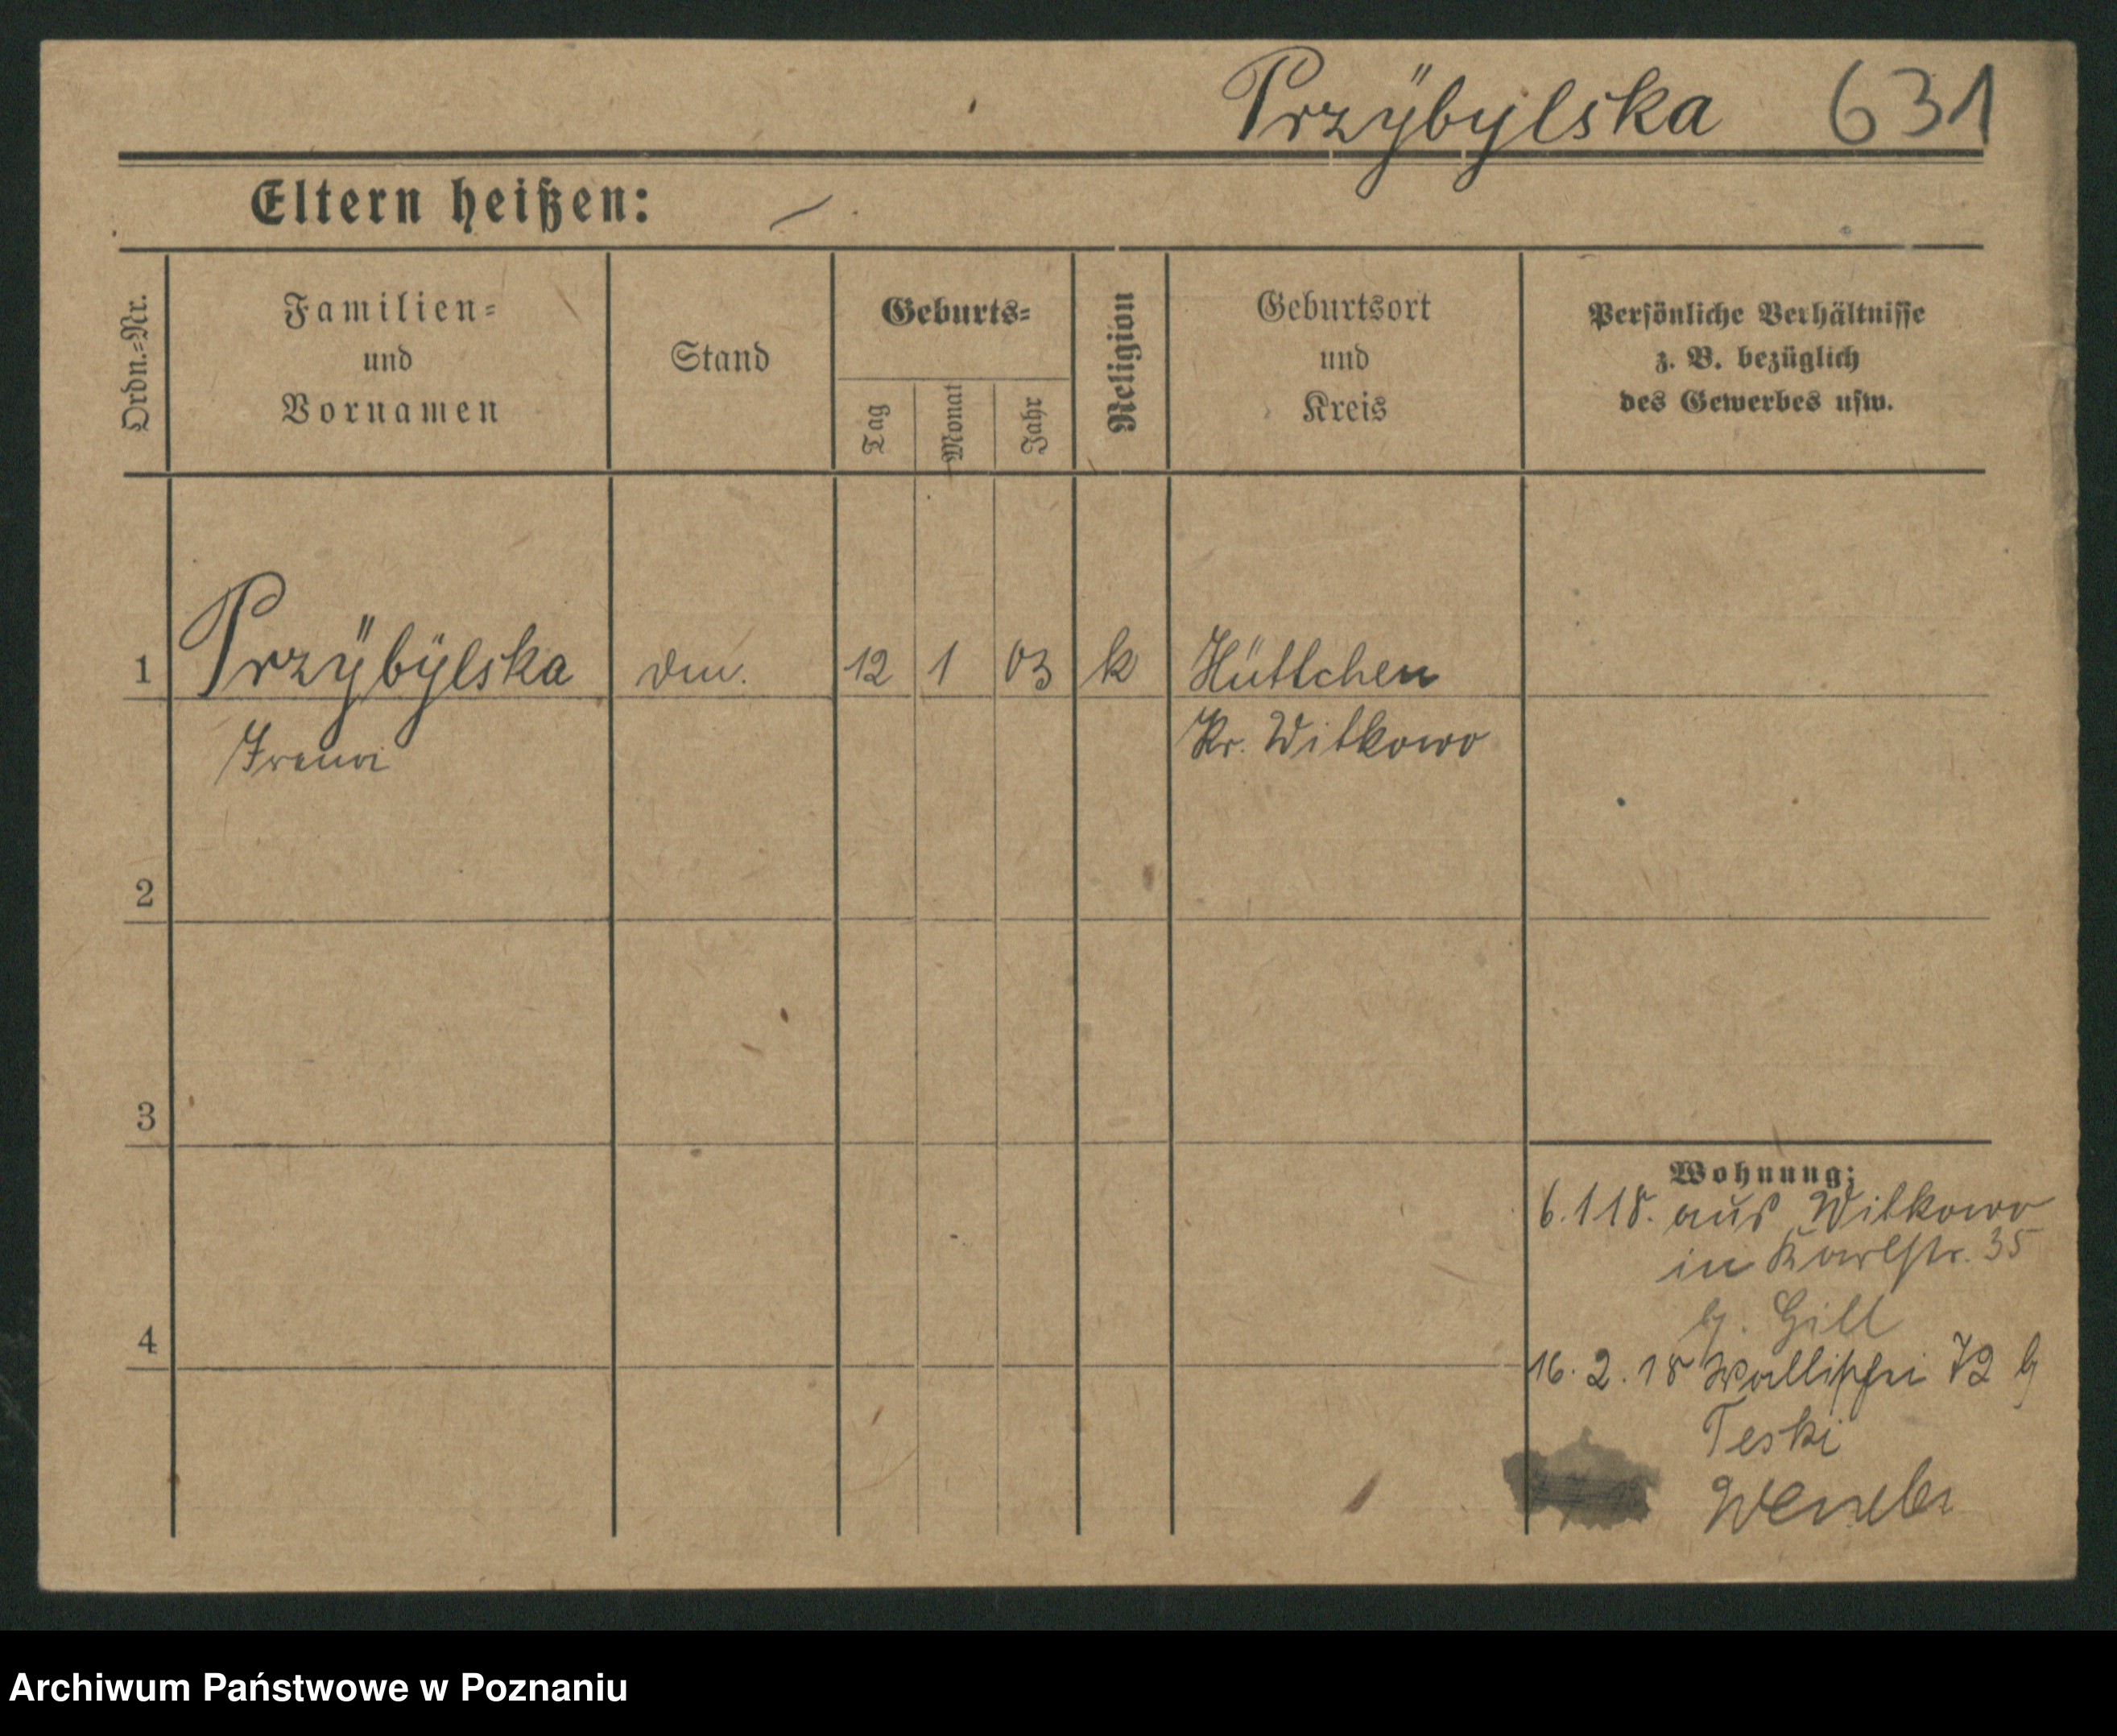 Przÿbylska 631
Eltern heißen: –
Ordn.=Nr.
Familien=
und
Vornamen
Stand
Geburts=
Tag
Monat
Jahr
Religion
Geburtsort
und
Kreis
Persönliche Verhältnisse
z. B. bezüglich
des Gewerbes usw.
1 Przÿbÿlska 12 1 03 k Hüttchen
Kr. Witkowo
2
3
4
Wohnung:
6.1 18. aus Witkowo
in Karlstr. 35
b. Gill
16. 2. 18 72 b
Teski
Archiwum Państwowe w Poznaniu